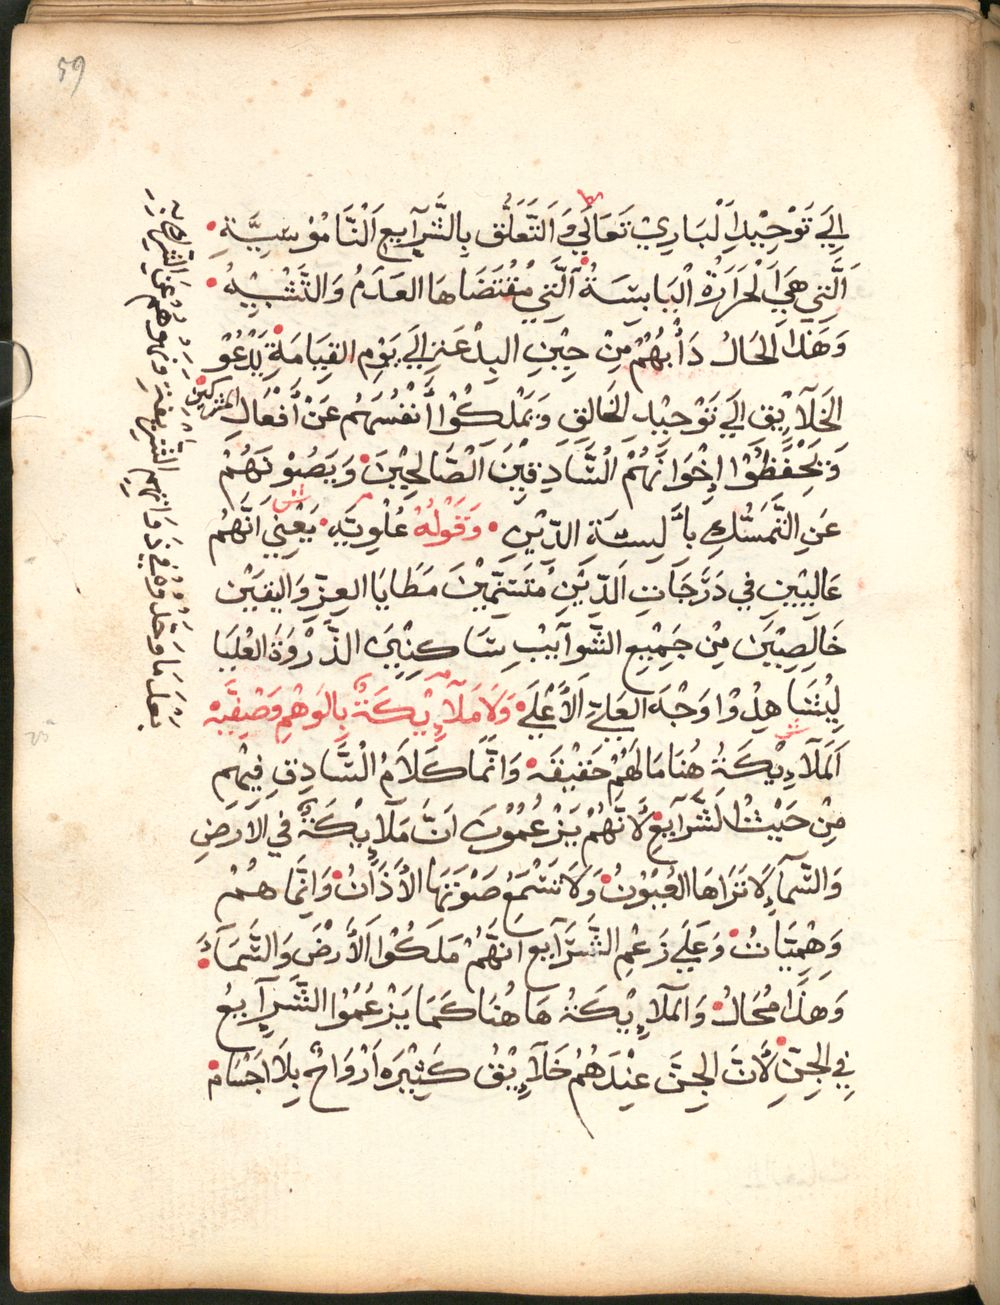 59
إِلَي تَوْحِيْدِ الْبَارِيْ تَعَالَي وَالتَّعَلُّق بِالشَّرَآيِعِ النَّامُوْسِيَّةِ
الَّتِي هِيَ الْحَرَارَةُ الْيَابِسَةُ الَّتِي مُقْتَضَاهَا العَدَمُ وَالتَّشْبِيْهُ
وَهَذَا الحَالُ دَأْبُهُمْ مِنْ حِيْنِ البِدْعَةِ إِلَي يَوْمِ القِيَامَةِ يَدْعُوْ
الخَلَآيِق الَي تَوْحِيْدِ الخَالِقِ وَيَمْلِكُوْا أَنْفُسَهُم عَنْ أَفْعَالِ المشركين
وَيَحْفَظُوْا اِخْوَانَهُمْ السَّادِقِيْنَ الصَّالِحِيْنَ وَيَصُوْنَهُمْ
عَنِ التَّمَسُّكِ بأَبْلِسَةِ الدِّيْنِ • وَقَوْلُهُ عُلْوِيَّهِ • يَعْنِي اَنَّهُم
عَالِيِيْنِ في دَرَجَاتِ الدِّيْنِ مُتَسَنِّمِيْنَ مَطَايَا العِزِّ وَاليَقِيْن
خَالِصِيْنَ مِنْ جَمِيْعِ الشَّوَآيِبِ سَاكِنِيْنَ الذَّرْوَةَ العُلْيَا
لِيُشَاهِدُوْا وَجْهَ العَلِيّ الأَعْلَي وَلَا مَلَآيِكَةٌ بِالوَهْمِ وَصِيْفِيَّه
اَلمَلَآيِكَةُ هُنَا مَا لَهُمْ حَقِيْقَه • وَاِنَّمَا كَلَامُ السَّادِقِ فِيْهِم
مِنْ حَيْثُ الشَّرَآيِعِ لِأَنَّهُمْ يَزْعُمُوْنَ اَنَّ مَلَآيِكَةً في الاَرضِ
وَالسَّمآءِ لَا تَرَاهَا العُيُوْنُ • وَلَا تَسْمَعُ صَوْتَهَا الأَذَانُ • وَاِنَّمَا هُمْ
وَهْمِيَّاتٌ • وَعَلَي زَعْمِ الشَّرَآيع انَّهُمْ مَلَكُوْا الأَرْضَ وَالسَّمَآءَ
وَهَذَا مُحَالٌ • وَالمَلَآيِكَةُ هَاهُنَا كَمَا يَزْعُمُوْا الشَّرَآيِعُ
فِي الجِنِّ • لِأَنَّ الجِنَّ عِنْدَهُمْ خَلَآيِقُ كَثِيْرَه اَرْوَاحٌ بِلَا اَجْسَام